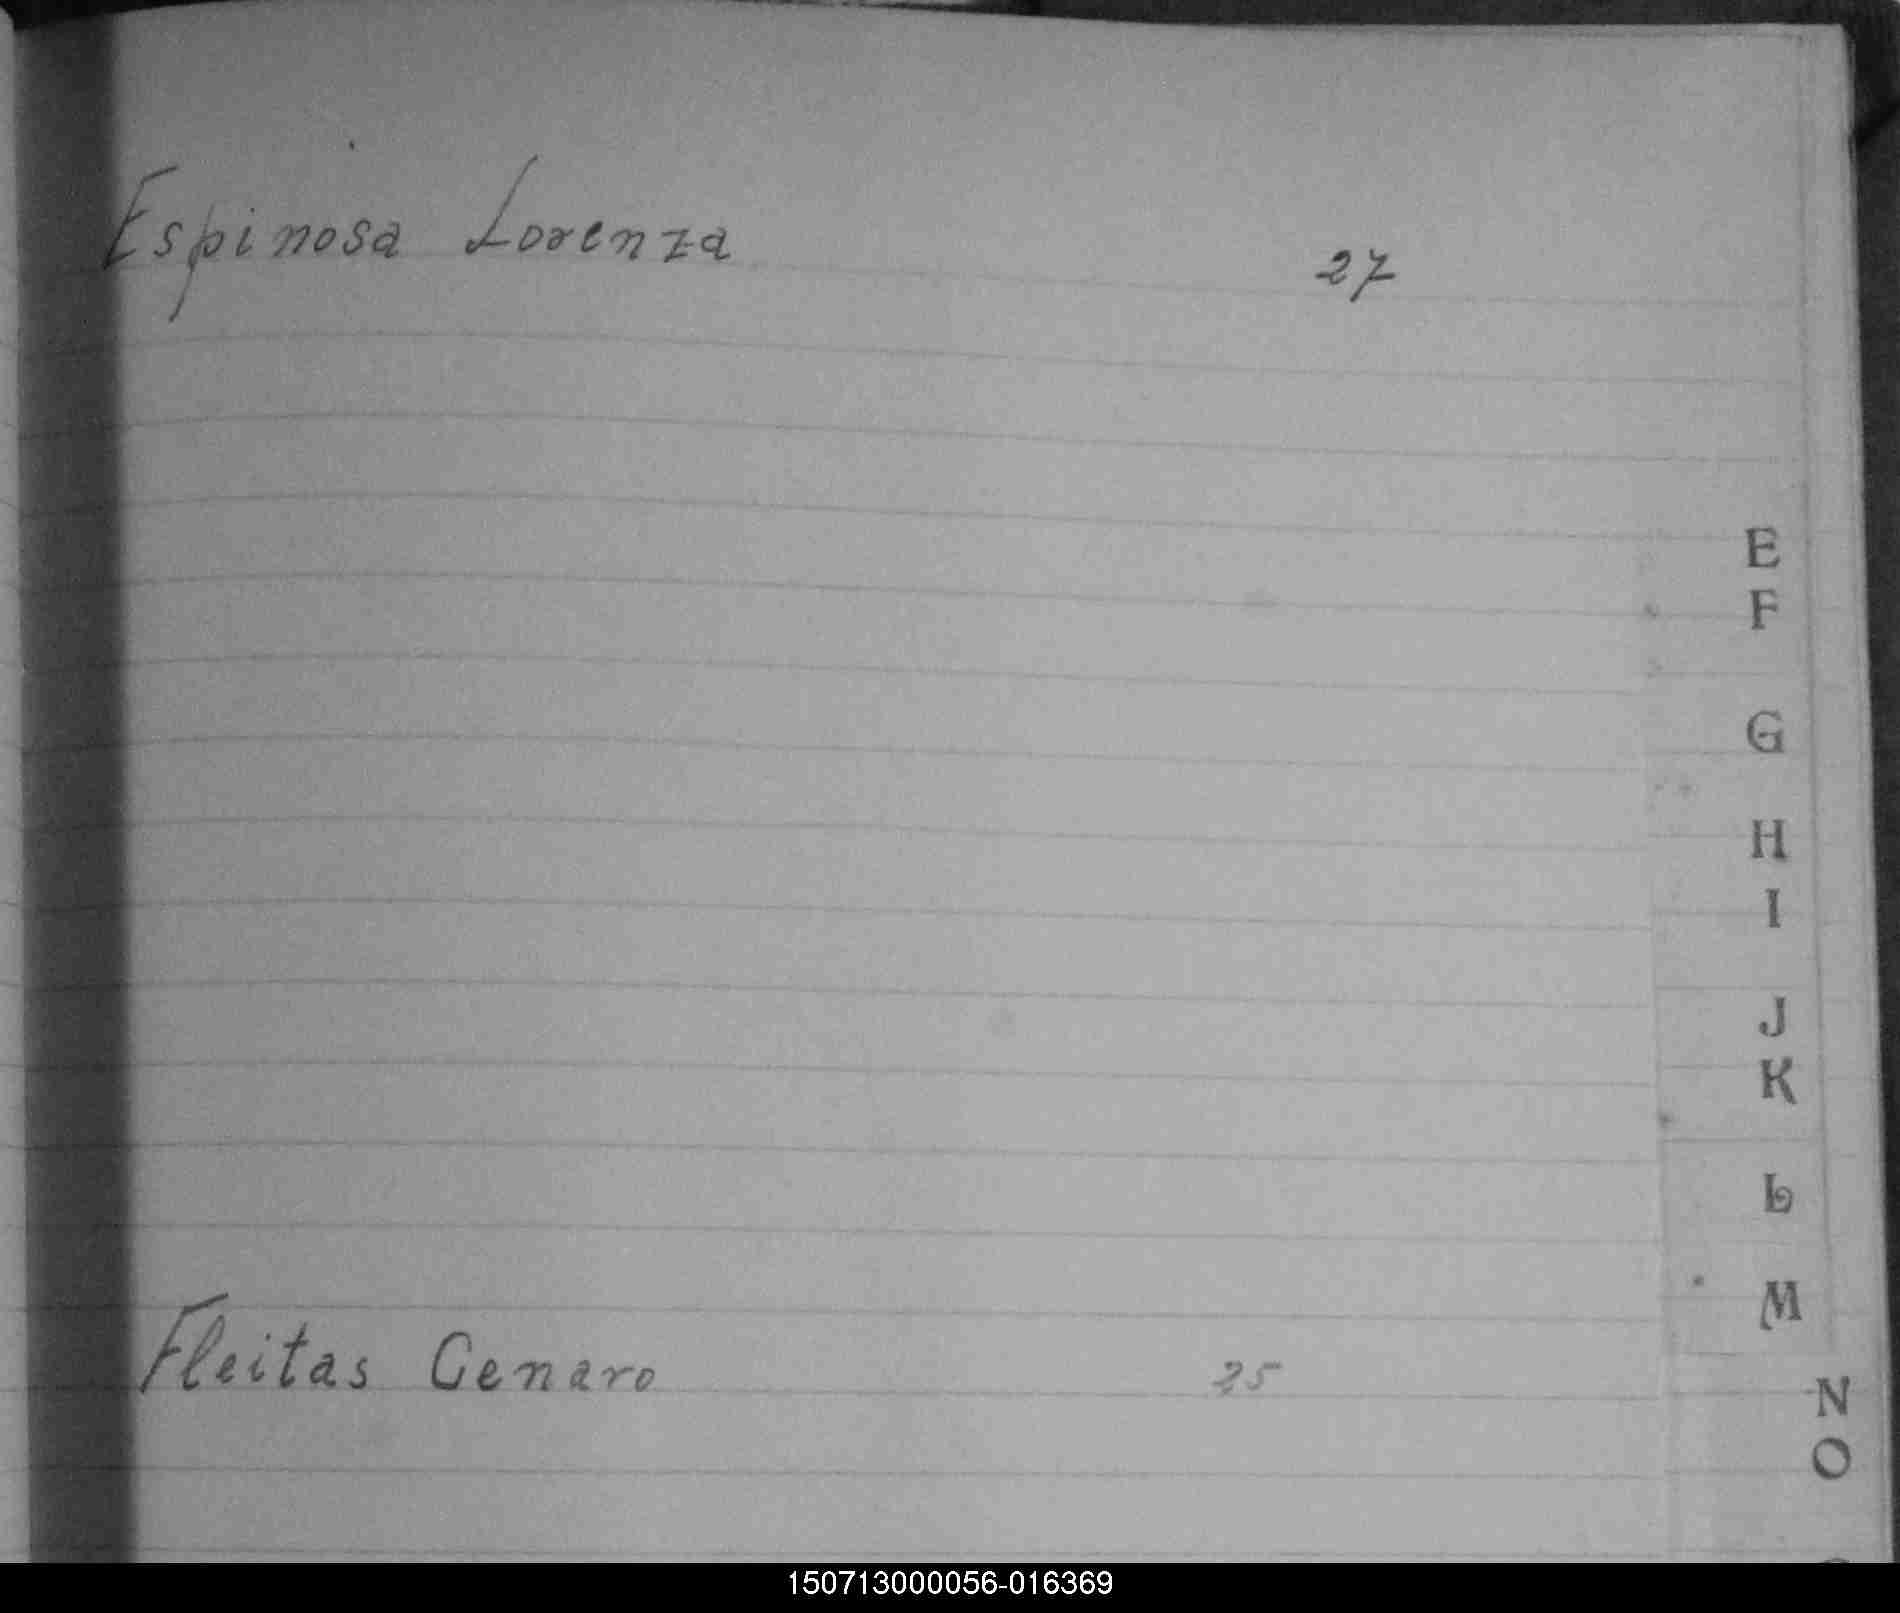 Espinosa Lorenza 27
E
F
G
H
I
J
K
L
M
Fleitas Genaro 25
N
O
150713000056-016369